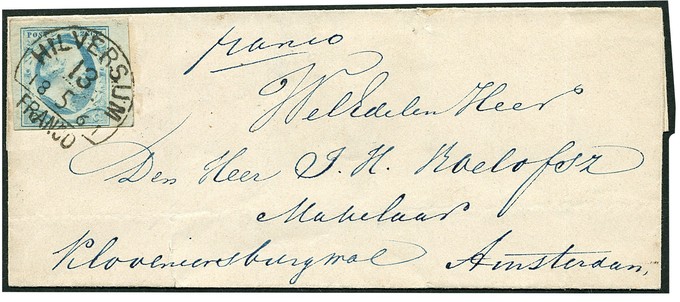 POST
HILVERSUM
13
5
18 61
FRANCO
C.
franco
WelEdelen Heer
Den Heer J. H. Roelofsz
Makelaar
Kloveniersburgwal Amsterdam,